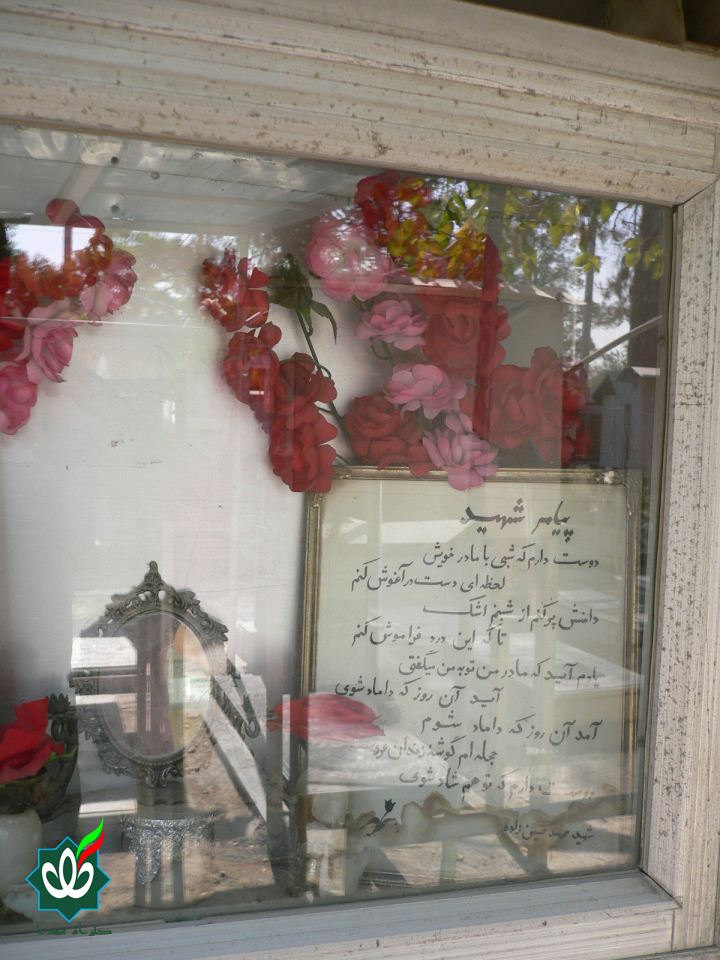 پیام شهید
دوست دارم که شبی با مادر خویش
لحظه ای دست در آغوش کنم
دامنش پر کنم از شبنم اشک
تا که این درد فراموش کنم
یادم آید که مادر من تو به من میگفتی
آید آن روز که داماد شوی
آمد آن روز که داماد شوم
حجله ام گوشه زندان
دوست دارم که تو هم شاد شوی
شهید حسین زاده